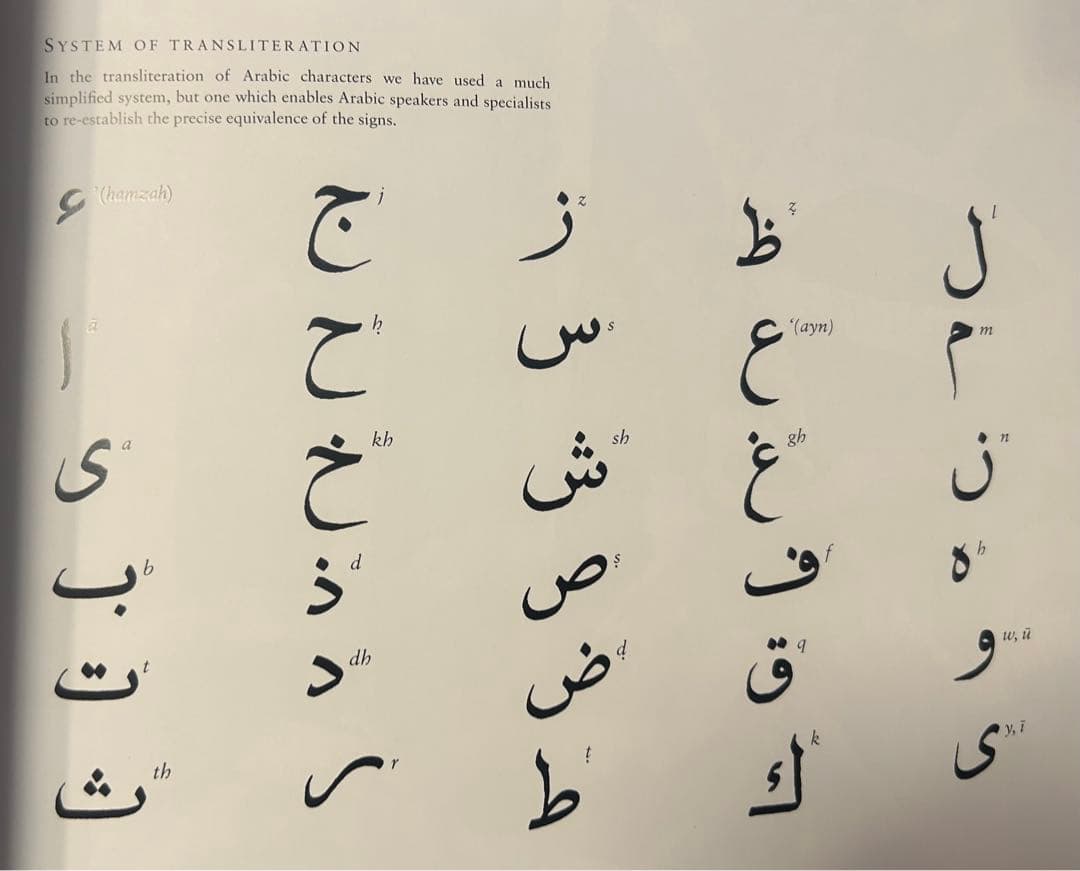 SYSTEM OF TRANSLITERATION
In the transliteration of Arabic characters we have used a much
simplified system, but one which enables Arabic speakers and specialists
to re-establish the precise equivalence of the signs.
ء ’(hamzah)
ا ā
ى a
ب b
ت t
ث th
ج j
ح ḥ
خ kh
ذ d
د dh
ر r
ز z
س s
ش sh
ص ṣ
ض ḍ
ط ṭ
ظ ẓ
ع ‘(ayn)
غ gh
ف f
ق q
ك k
ل l
م m
ن n
ه h
و w, ū
ى y, ī